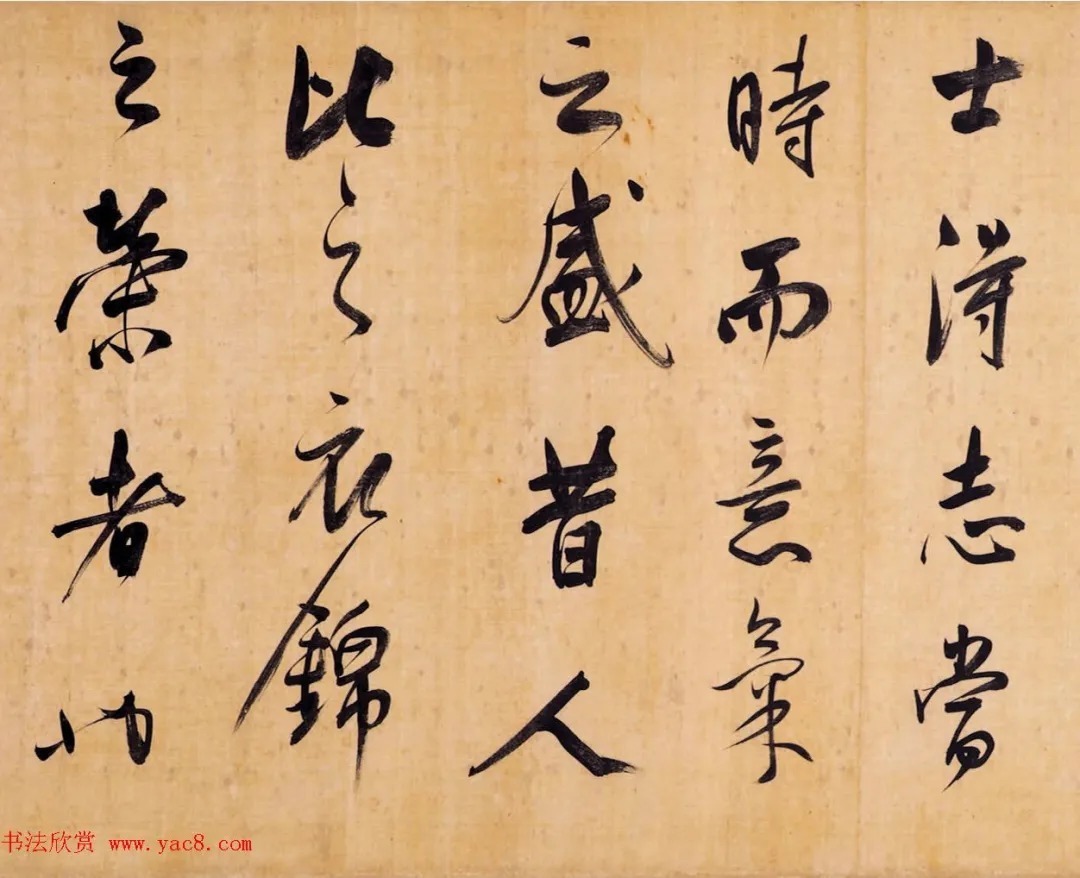 士得志當
時而意氣
之盛昔人
比之衣錦
之榮者也
书法欣赏 www.yac8.com